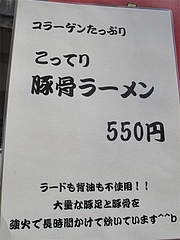 コラーゲンたっぷり
こってり
豚骨ラーメン
550円
ラードも背油も不使用！！
大量な豚足と豚骨を
強火で長時間かけて炊いています^^b